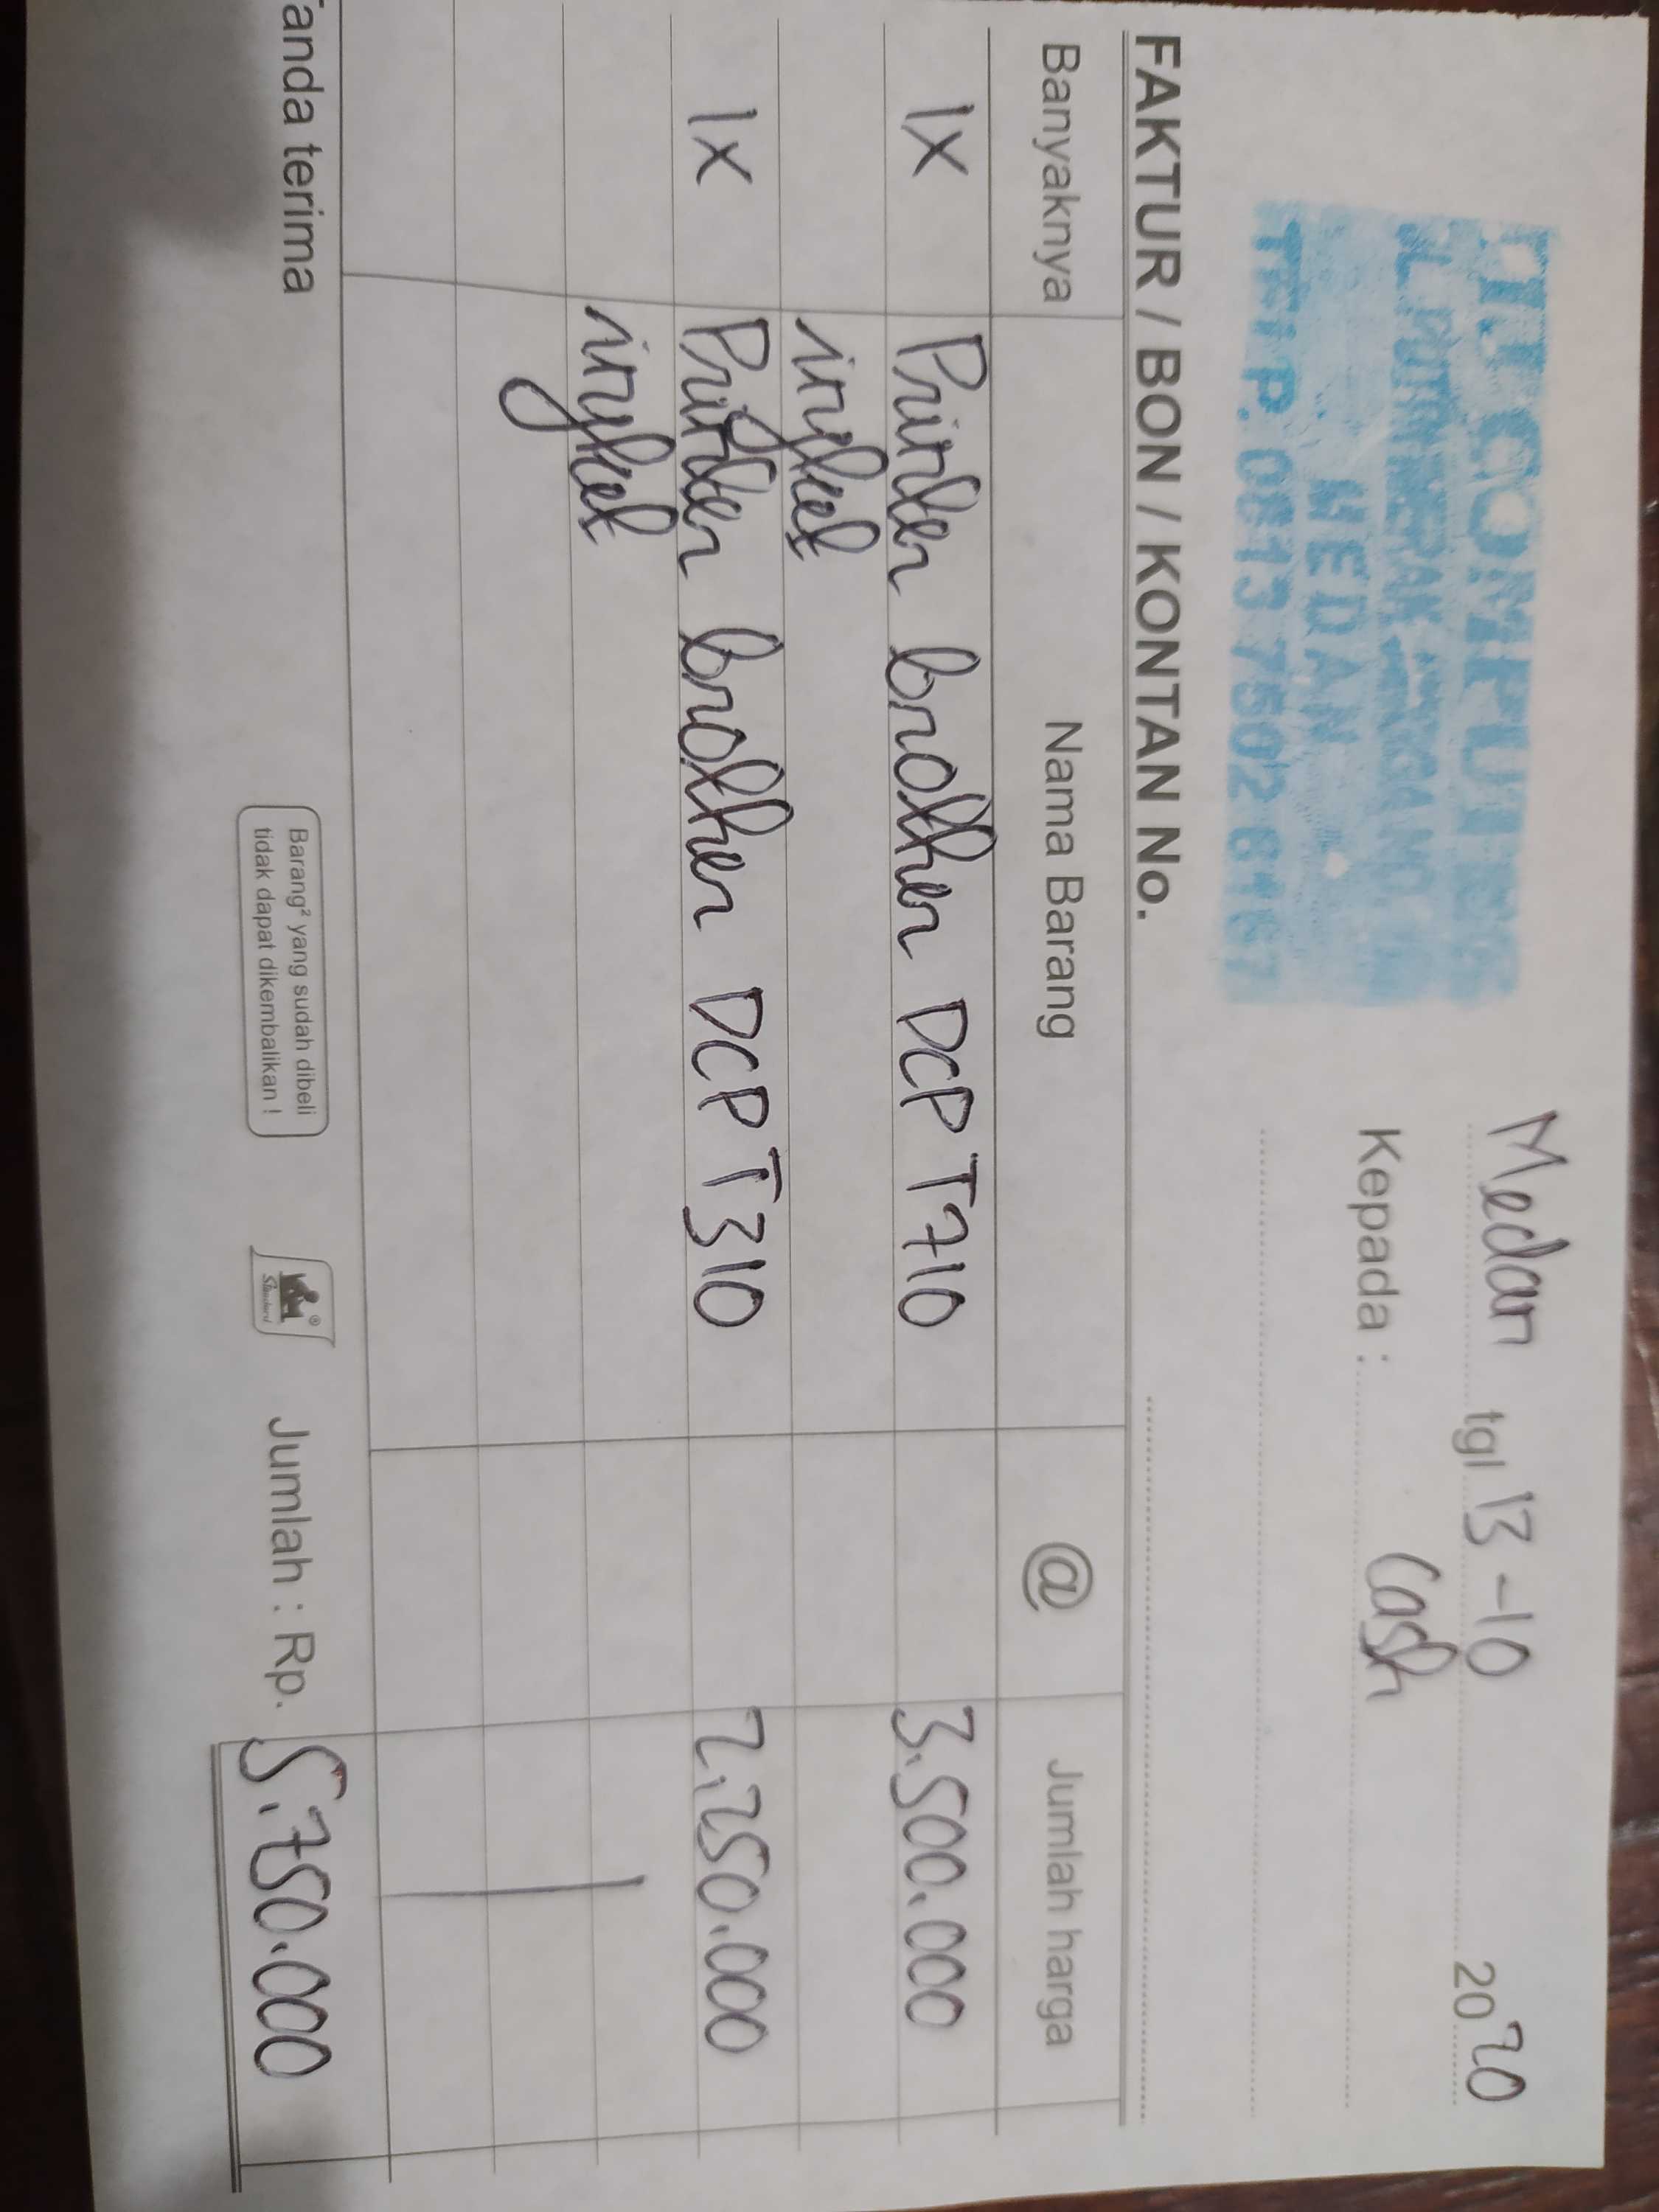 COMPUTER
MEDAN
TELP. 0813 7502 8167
Medan tgl 13-10 2020
Kepada : Cash
FAKTUR / BON / KONTAN No.
Banyaknya Nama Barang @ Jumlah harga
1x Printer brother DCP T710 3.500.000
inkjet
1x Printer brother DCP T310 2.250.000
inkjet
Tanda terima
Barang² yang sudah dibeli
tidak dapat dikembalikan !
Standard ®
Jumlah : Rp. 5.750.000